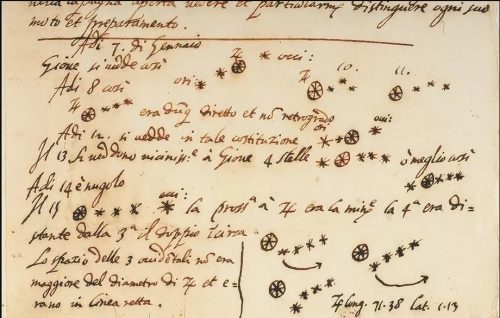 nella campagna aperta vedere et particularm distinguere ogni suo
moto et preparamento.
Adi 7. di Gennaio
Giove si vedde così ori: occi:
Adi 8 così 10. 11.
era dunque diretto et non retrogrado
Adi 12. si vedde in tale costituzione ori occi:
Il 13 si veddono vicinissime à Giove 4 stelle ò meglio così
Adi 14 è nugolo
Il 15 occi: la prossa à era la mina la 4a era di-
stante dalla 3a il doppio
Lo spazio delle 3 occidentali non era
maggiore del diametro di et e-
rano in linea retta.
long. 71.38 lat. 1.13